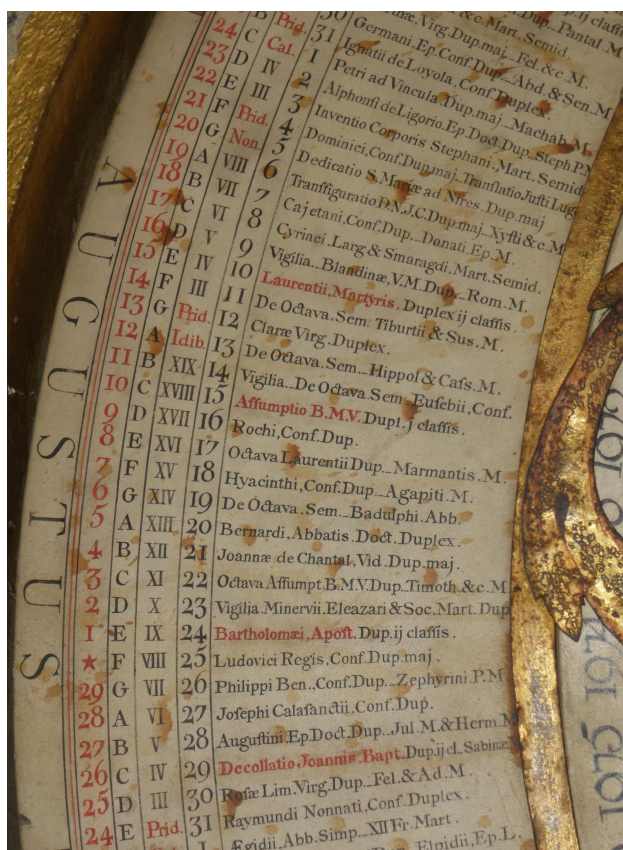 Pantal. M
&c. Mart. Semid
30 Virg. Dup. maj. Fel. &c. M.
B Prid. 31 Germani. Ep. Conf. Dup. Abd. & Sen. M
24 C Cal. 1 Ignatii de Loyola, Conf. Duplex.
23 D IV 2 Petri ad Vincula. Dup. maj. Machab. M.
22 E III 3 Alphonsi de Ligorio. Ep. Doct. Dup. Steph P.
21 F Prid. 4 Inventio Corporis Stephani. Mart. Semid
20 G Non. 5 Dominici, Conf. Dup. maj. Translatio Justi Lug
19 A VIII 6 Dedicatio S. Mariæ ad Nives. Dup. maj
18 B VII 7 Transfiguratio D.N.J.C. Dup. maj. Xysti & c. M.
17 C VI 8 Cajetani. Conf. Dup. Donati, Ep. M.
16 D V 9 Cyriaci. Larg & Smaragdi, Mart. Semid.
15 E IV 10 Vigilia. Blandinæ, V.M. Dup. Rom. M.
14 F III 11 Laurentii, Martyris. Duplex ij classis.
13 G Prid. 12 De Octava. Sem. Tiburtii & Sus. M.
12 A Idib. 13 Claræ Virg. Duplex.
11 B XIX 14 De Octava. Sem. Hippol & Cass. M.
10 C XVIII 15 Vigilia. De Octava. Sem. Eusebii, Conf.
9 D XVII 16 Assumptio B.M.V. Dupl. j classis.
8 E XVI 17 Rochi, Conf. Dup.
7 F XV 18 Octava Laurentii Dup. Marmantis. M.
6 G XIV 19 Hyacinthi, Conf. Dup. Agapiti. M.
5 A XIII 20 De Octava. Sem. Badulphi Abb.
4 B XII 21 Bernardi, Abbatis. Doct. Duplex.
3 C XI 22 Joannæ de Chantal, Vid. Dup. maj.
2 D X 23 Octava Assumpt. B.M.V. Dup. Timoth. & c. M
1 E IX 24 Vigilia. Minervii. Eleazari & Soc. Mart. Dup
★ F VIII 25 Bartholomæi, Apost. Dup. ij classis.
29 G VII 26 Ludovici Regis, Conf. Dup. maj.
28 A VI 27 Philippi Ben., Conf. Dup. Zephyrini. P.M
27 B V 28 Josephi Calasanctii, Conf. Dup.
26 C IV 29 Augustini. Ep. Doct. Dup. Jul. M. & Herm. M
25 D III 30 Decollatio Joannis. Bapt. Dup. ij cl. Sabinæ
24 E Prid. 31 Rosæ Lim. Virg. Dup. Fel. & Ad. M.
Raymundi Nonnati. Conf. Duplex.
Ægidii, Abb. Simp. XII Fr. Mart.
Elpidii, Ep. L.
AUGUSTUS
1975 1974